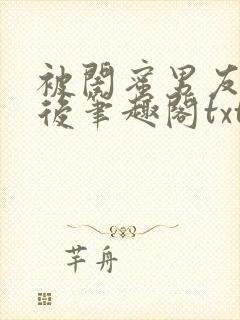 被闺蜜男友
後笔趣阁txt
芊舟